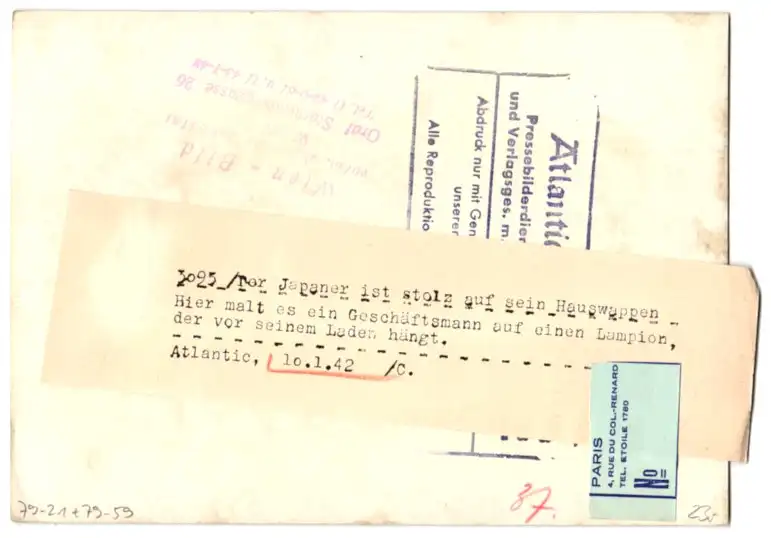 Wien - Bild
Graf Starhemberggasse 26
Atlantic
Pressebilderdien
und Verlagsges. m.
Abdruck nur mit Gen
unserer
Alle Reproduktio
3095/Der Japaner ist stolz auf sein Hauswappen
Hier malt es ein Geschäftsmann auf einen Lampion,
der vor seinem Laden hängt.
Atlantic, 10.1.42 /C.
PARIS
4, RUE DU COL.-RENARD
TEL. ETOILE 1780
No=
79-21+79-59
37.